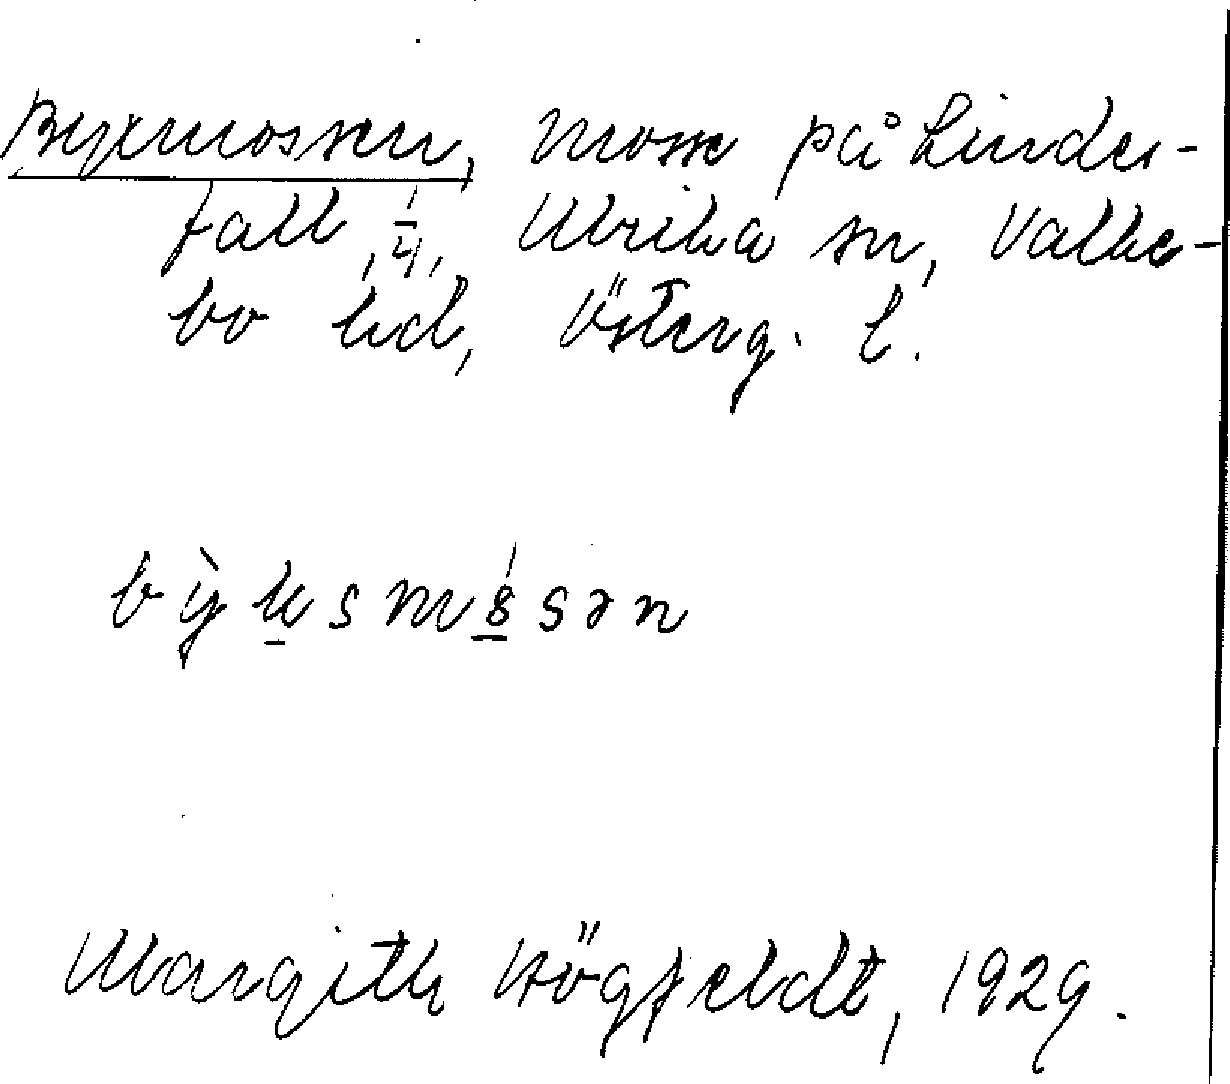 Byxmossen, mosse på Linder-
fall, 1/4, Ulrika sn, Valke-
bo hd, Österg. l.
bỳksmɷ́sən
Margith Högfeldt, 1929.